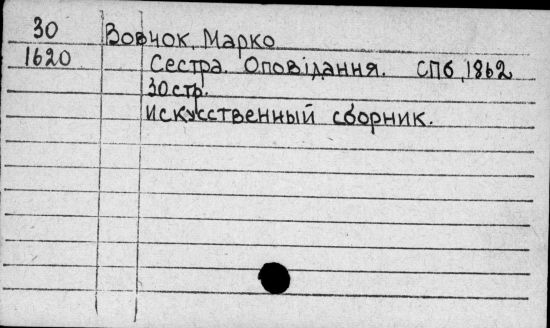 30 Вовчок, Марко
1620 Сестра. Оповідання. СПб, 1862
30 стр.
Искусственный сборник.